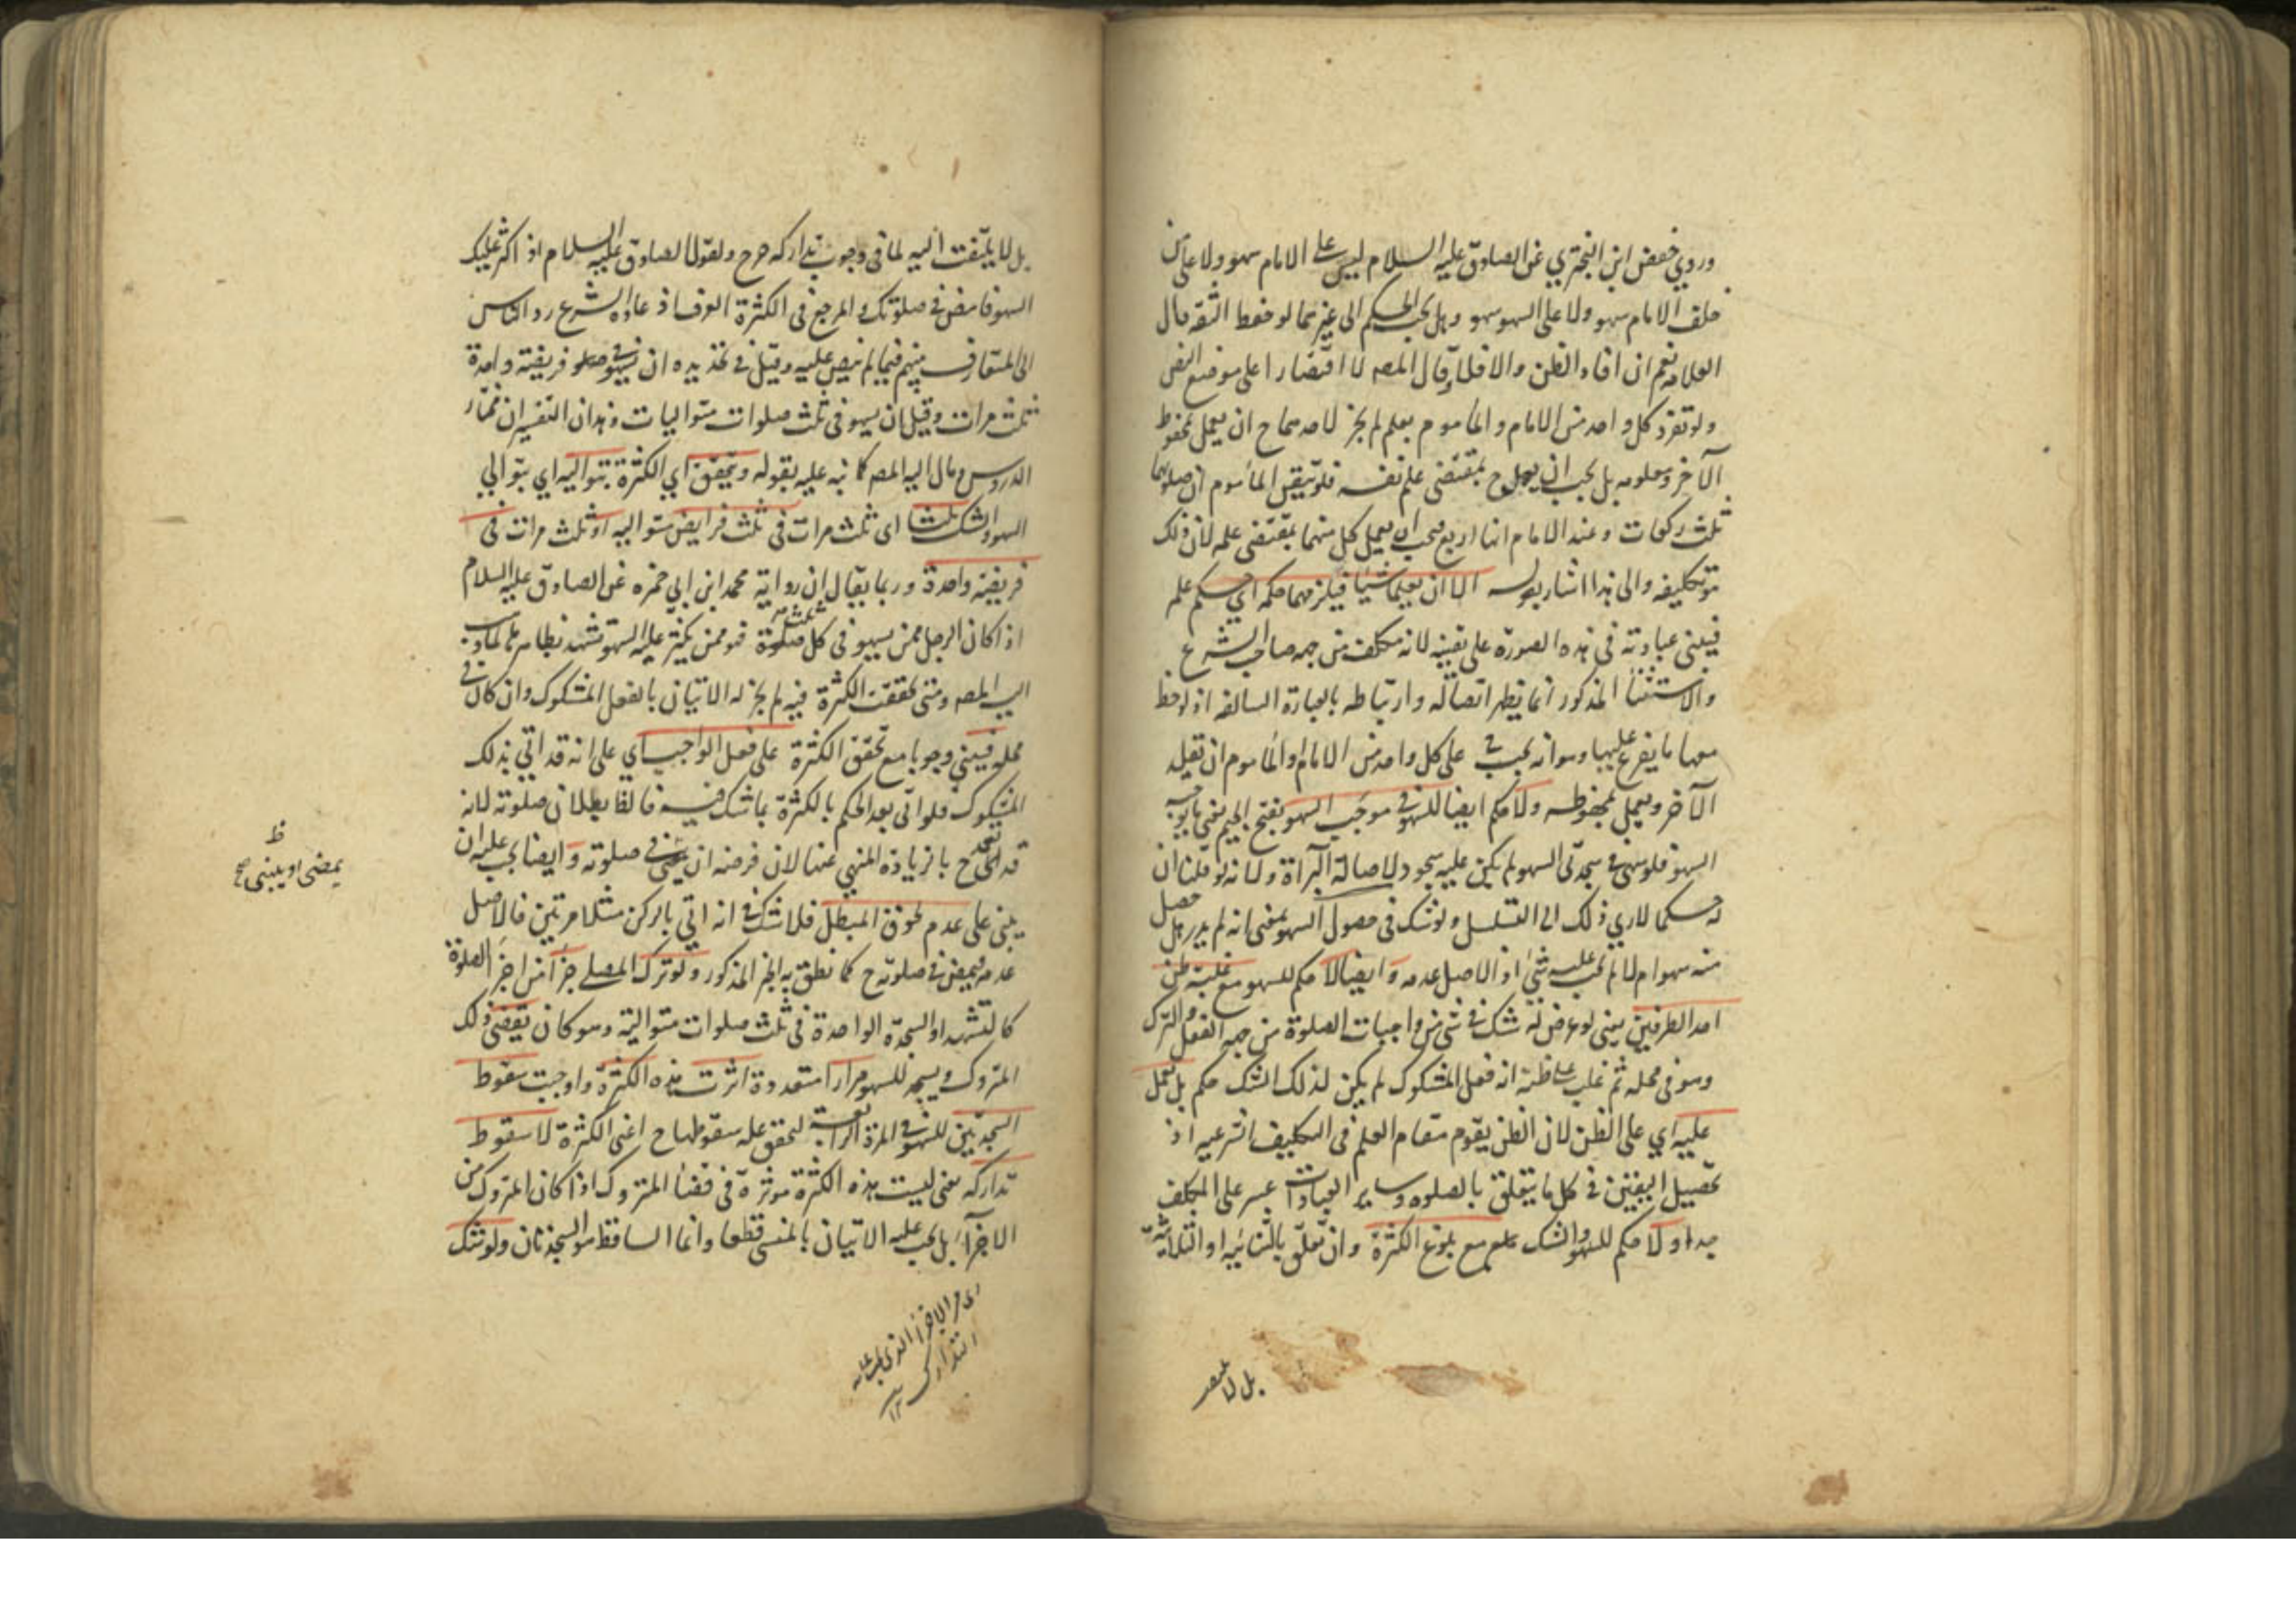 وروي حفص ابن البختري عن الصادق عليه السلام ليس على الامام سهو ولا على من
خلف الامام سهو ولا على السهو سهو وهل يجب الحكم الى غيرهما لو حفظ الثقه قال
العلامه نعم ان افاد الظن والا فلا وقال المصه لا اقتصارا على موضع النص
ولو تفرد كل واحد من الامام والماموم بعلم لم يجز لاحدهما ح ان يعمل بمحفوظ
الآخر ومعلومه بل يجب ان يعمل ح بمقتضى علم نفسه فلو تيقن المأموم ان صلوتهما
ثلث ركعات وعند الامام انها اربع فيجب ان يعمل كل منهما بمقتضى علمه لان ذلك
هو تكليفه والى هذا اشار بقوله الا ان يعلما شيئا فيلزمهما حكمه اي حكم علم
فيبنى عبادته في هذه الصورة على يقينه لانه مكلف من جهه صاحب الشرع
والاستثنا المذكور انما يظهر اتصاله وارتباطه بالعبارة السالفه اذا لوحظ
معها ما يفرع عليها وهو انه يجب على كل واحد من الامام او المأموم ان يقلد
الآخر ويعمل بمحفوظه ولا حكم ايضا للسهو في موجب السهو بفتح الجيم يعني ما يوجبه
السهو فلو سهى في سجدتى السهو لم يكن عليه سجود لاصالة البرآة ولانه لو قلنا ان
له حكما لادي ذلك الى التسلسل ولو شك في حصول السهو بمعنى انه لم يدر هل حصل
منه سهو ام لا لم يجب عليه شئ اذ الاصل عدمه وايضا لا حكم للسهو مع غلبة ظن
احد الطرفين يعني لو عرض له شك في شئ من واجبات الصلوة من جهه الفعل والترك
وهو في محله ثم غلب على ظنه انه فعل المشكوك لم يكن لذلك الشك حكم بل يعمل
عليه اي على الظن لان الظن يقوم مقام العلم في التكليف الشرعيه اذ
تحصيل اليقين في كل ما يتعلق بالصلوه وساير العبادات عسر على المكلف
جدا ولا حكم للسهو والشك مع بلوغ الكثرة وان تعلق بالثنائيه او الثلاثيه
بل لا
بل لا يلتفت اليه لما في وجوب تداركه حرج ولقول الصادق عليه السلام اذا كثر عليك
السهو فامض في صلوتك والمرجع في الكثرة العرف اذ عادة الشرع رد الناس
الى المتعارف بينهم فيما لم ينص عليه وقيل في تحديده ان يسهو في صلو فريضة واحدة
ثلث مرات وقيل ان يسهو في ثلث صلوات متواليات وهذان التفسيران مختار
الدروس ومال اليه المصه كما نبه عليه بقوله ويتحقق اي الكثرة بتواليه اي بتوالي
السهو والشك ثلثا اى ثلث مرات في ثلث فرايض متواليه او ثلث مرات في
فريضة واحدة وربما يقال ان رواية محمد ابن ابي حمزه عن الصادق عليه السلام
اذا كان الرجل ممن يسهو في كل ثلث صلوة فهو ممن يكثر عليه السهو تشهد بظاهرها لما ذهب
اليه المصه ومتى تحققت الكثرة فيه لم يجز له الاتيان بالفعل المشكوك وان كان في
محله فيبني وجوبا مع تحقق الكثرة على فعل الواجب اي على انه قد اتي بذلك
المشكوك فلو اتى بعد الحكم بالكثرة بما شك فيه فالظ بطلان صلوته لانه
قد تعمد ح بالزيادة المنهي عنها لان فرضه ان يمضى في صلوته وايضا يجب عليه ان
يبنى على عدم لحوق المبطل فلا شك في انه اتي بالركن مثلا مرتين فالاصل
عدمه فيمضى في صلوته ح كما نطق به الخبر المذكور ولو ترك المصلى جزأ من اجزآ الصلوة
كالتشهد او السجدة الواحدة في ثلث صلوات متوالية وهو كان يقضي ذلك
المتروك ويسجد للسهو مرارا متعددة اثرت هذه الكثرة واوجبت سقوط
السجدتين للسهو في المرة الرابعة لتحقق علة سقوطها ح اعنى الكثرة لا سقوط
تداركه يعنى ليست هذه الكثرة موثرة في قضا المتروك اذا كان المتروك من
الاجزآ بل يجب عليه الاتيان بالمنسى قطعا وانما الساقط هو السجدتان ولو شك
ظ
يمضى او يبنى صح
التدارك ١٢